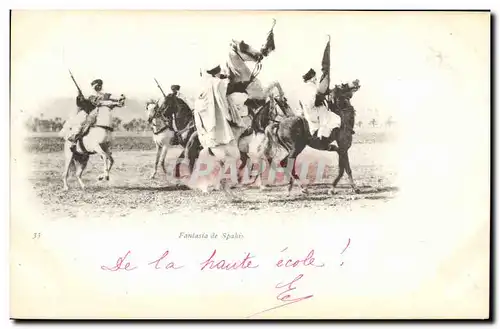 33 Fantasia de Spahis
De la haute école !
E